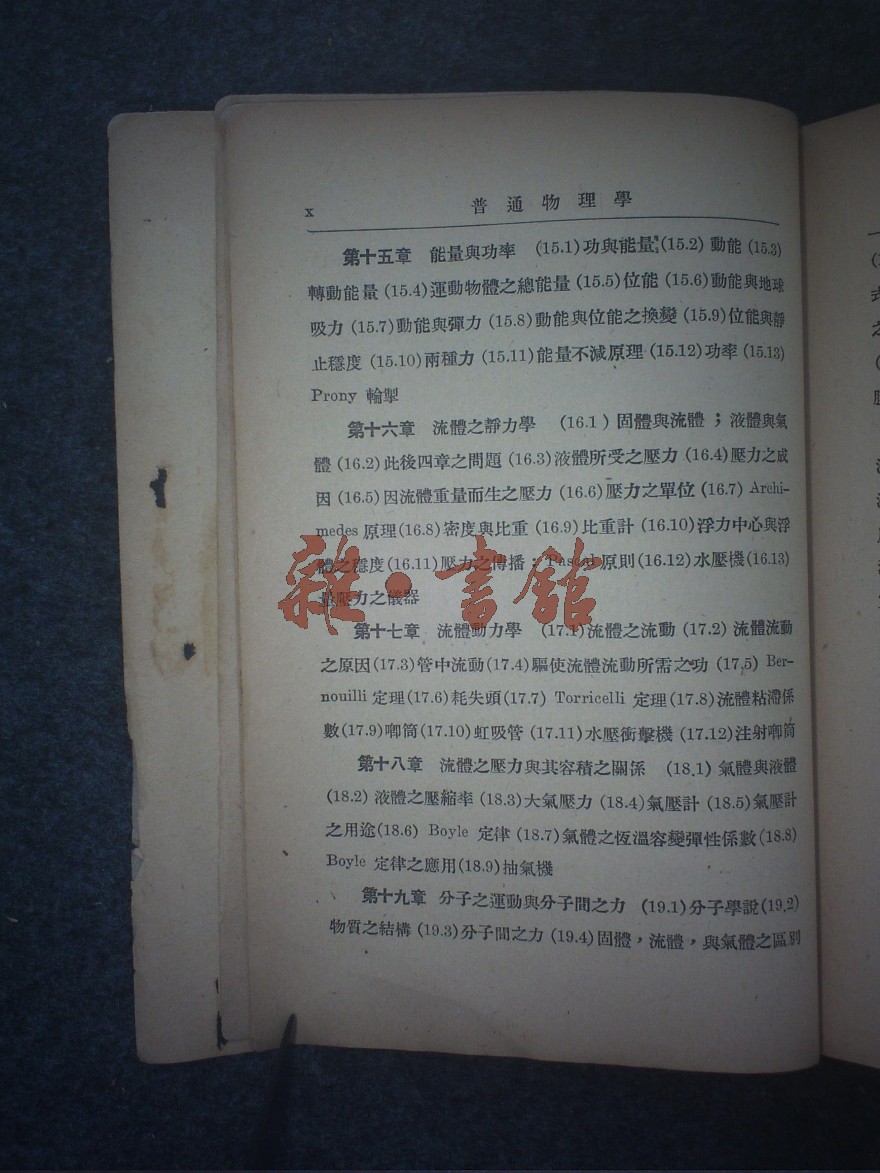 x 普通物理學
第十五章 能量與功率 (15.1)功與能量(15.2) 動能 (15.3)
轉動能量 (15.4)運動物體之總能量 (15.5)位能 (15.6)動能與地球
吸力 (15.7)動能與彈力 (15.8)動能與位能之換變 (15.9)位能與靜
止穩度 (15.10)兩種力 (15.11)能量不減原理 (15.12)功率 (15.13)
Prony 輪掣
第十六章 流體之靜力學 (16.1) 固體與流體;液體與氣
體 (16.2)此後四章之問題 (16.3)液體所受之壓力 (16.4)壓力之成
因 (16.5)因流體重量而生之壓力 (16.6)壓力之單位 (16.7) Archi-
medes 原理(16.8)密度與比重 (16.9)比重計 (16.10)浮力中心與浮
體之穩度(16.11)壓力之傳播;Pascal原則(16.12)水壓機(16.13)
量壓力之儀器
雜·書館
第十七章 流體動力學 (17.1)流體之流動 (17.2) 流體流動
之原因(17.3)管中流動(17.4)驅使流體流動所需之功 (17.5) Ber-
nouilli 定理(17.6)耗失頭(17.7) Torricelli 定理(17.8)流體粘滯係
數(17.9)喞筒(17.10)虹吸管 (17.11)水壓衝擊機 (17.12)注射喞筒
第十八章 流體之壓力與其容積之關係 (18.1) 氣體與液體
(18.2) 液體之壓縮率 (18.3)大氣壓力 (18.4)氣壓計 (18.5)氣壓計
之用途(18.6) Boyle 定律 (18.7)氣體之恆溫容變彈性係數(18.8)
Boyle 定律之應用(18.9)抽氣機
第十九章 分子之運動與分子間之力 (19.1)分子學說(19.2)
物質之結構 (19.3)分子間之力 (19.4)固體,流體,與氣體之區別